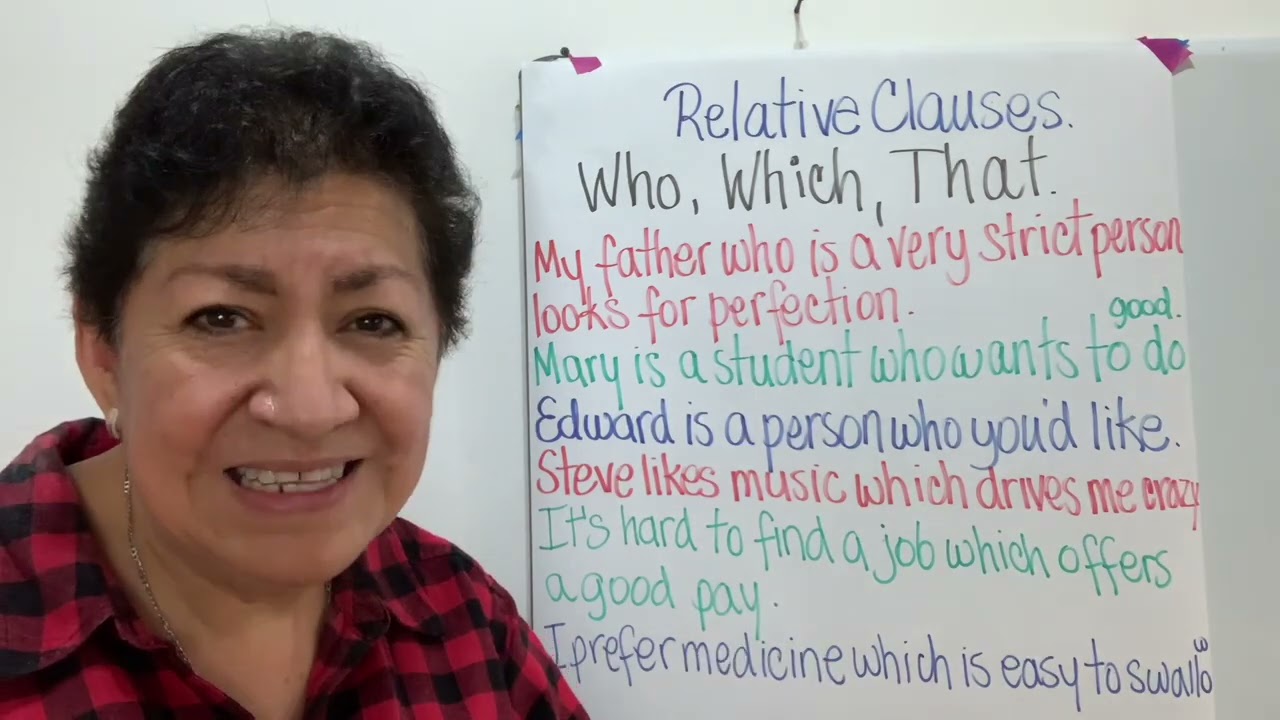 Relative Clauses.
Who, Which, That.
My father who is a very strict person
looks for perfection.
good.
Mary is a student who wants to do
Edward is a person who you'd like.
Steve likes music which drives me crazy
It's hard to find a job which offers
a good pay.
I prefer medicine which is easy to swallow